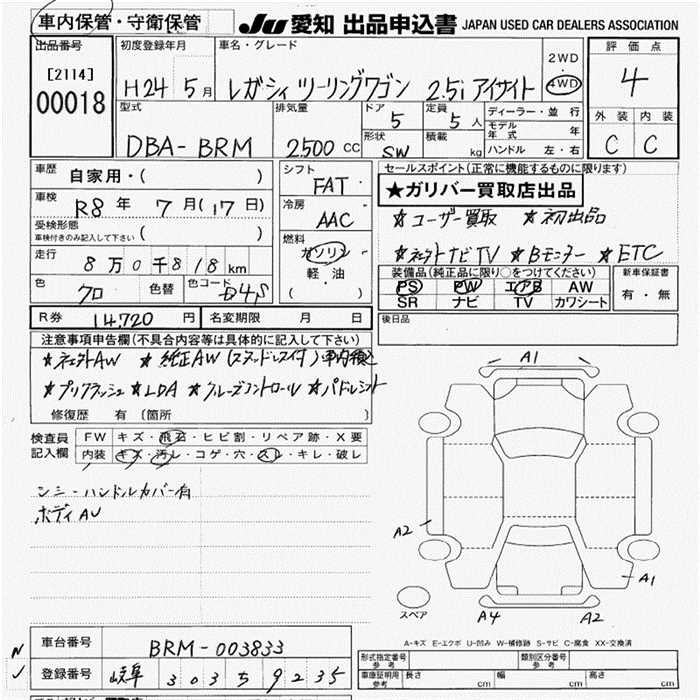 車内保管・守衛保管
JU 愛知 出品申込書 JAPAN USED CAR DEALERS ASSOCIATION
出品番号 初度登録年月 車名・グレード 評価点
[2114] 00018 H24 5月 レガシィ ツーリングワゴン 2.5i アイサイト 2WD 4WD 4
型式 排気量 ドア 定員 ディーラー・並行 外装 内装
DBA-BRM 2500 CC 5 5人 モデル年式 年 C C
形状 積載 ハンドル 左・右
SW kg
車歴 自家用・( ) シフト FAT セールスポイント(正常に機能するものに限ります)
★ガリバー買取店出品
車検 R8年 7月(17日) 冷房 AAC ★ユーザー買取 ★初出品
受検形態 車検付きのみ記入して下さい ( ) 燃料 ★ TV ★Bモニター ★ETC
走行 8万0千818km ガソリン 軽・油 ( )
装備品(純正品に限り○をつけてください) 新車保証書
色 クロ 色替 色コード D4S PS PW エアB AW 有・無
SR ナビ TV カワシート
R券 14,720円 名変期限 月 日 後日品
注意事項申告欄(不具合内容等は具体的に記入して下さい)
AW ★純正AW(スタッドレス付)車内積込
★プリクラッシュ ★LDA ★クルーズコントロール ★パドルシフト
修復歴 有 (箇所 )
A1
検査員記入欄 FW キズ・飛石・ヒビ割・リペア跡・X要
内装 キズ・汚レ・コゲ・穴・スレ・キレ・破レ
ハンドルカバー有
ボディAU
A2
A1
スペア A4 A2
A-キズ E-エクボ U-凹み W-補修跡 S-サビ C-腐食 XX-交換済
車台番号 BRM-003833
形式指定番号 参考 類別区分番号 参考
登録番号 岐阜 303 5 9235
車庫証明用 参考 長さ cm 幅 cm 高さ cm